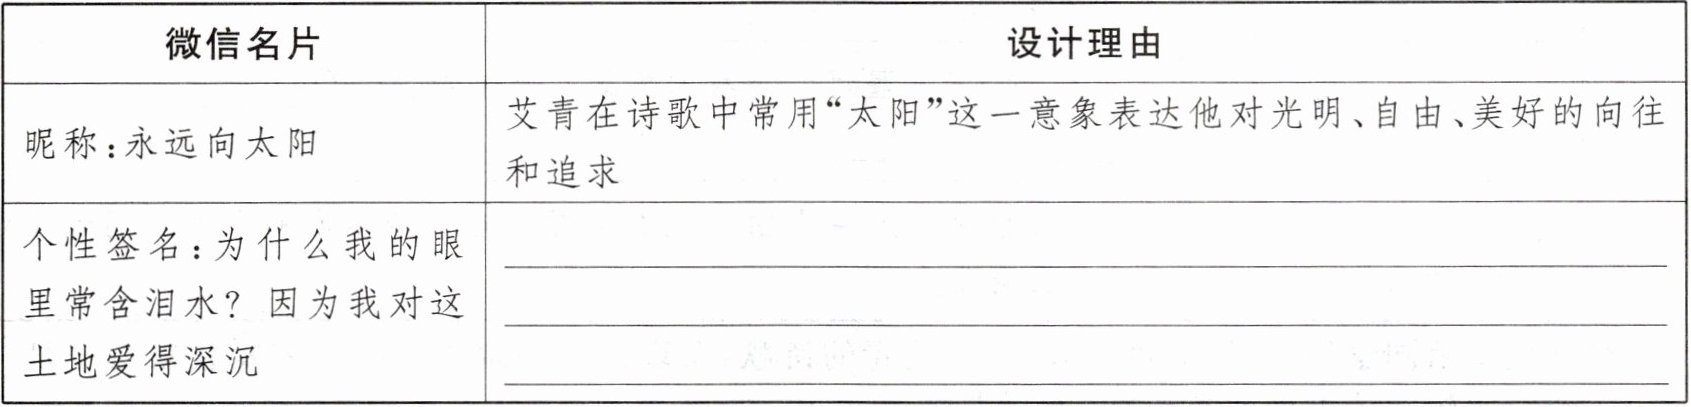 微信名片
设计理由
昵称:永远向太阳
艾青在诗歌中常用“太阳”这一意象表达他对光明、自由、美好的向往
和追求
个性签名:为什么我的眼
里常含泪水? 因为我对这
土地爱得深沉